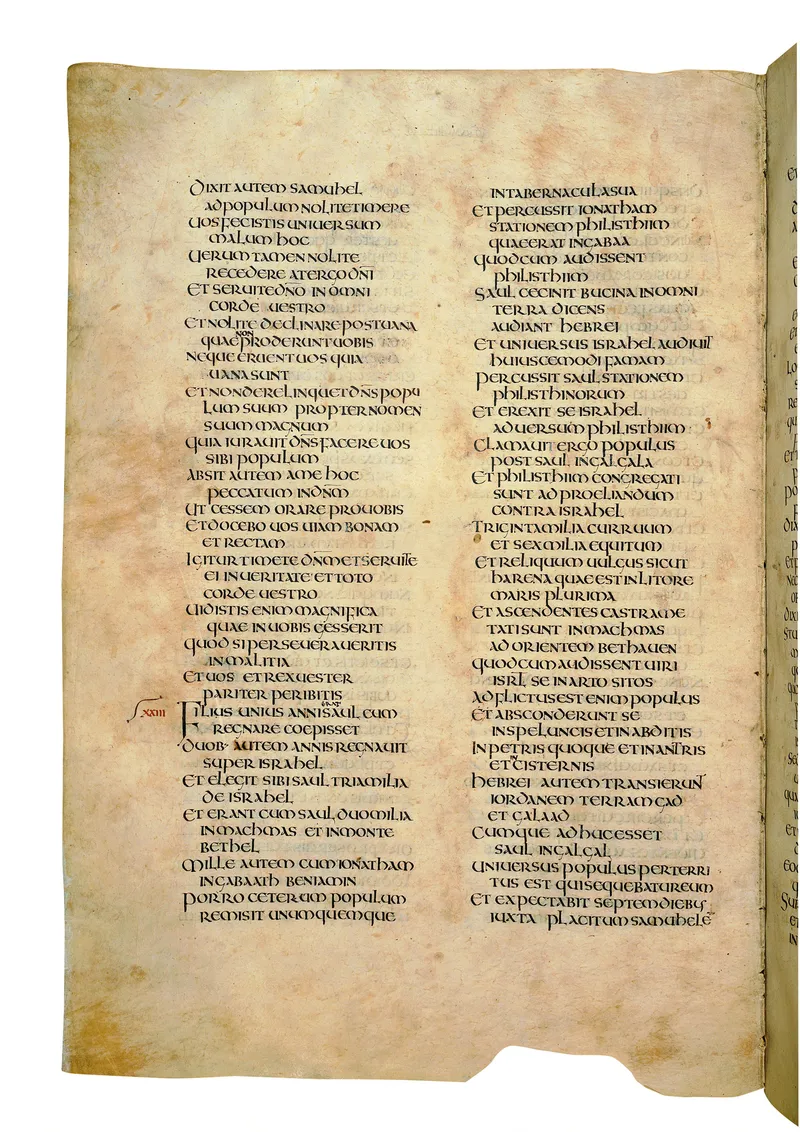 DIXIT AUTEM SAMUHEL
AD POPULUM NOLITE TIMERE
UOS FECISTIS UNIUERSUM
MALUM HOC
UERUM TAMEN NOLITE
RECEDERE A TERGO DN̄I
ET SERUITE DN̄O IN OMNI
CORDE UESTRO
ET NOLITE DECLINARE POST UANA
NON
QUAE PRODERUNT UOBIS
NEQUE ERUENT UOS QUIA
UANA SUNT
ET NON DERELINQUET DN̄S POPU
LUM SUUM PROPTER NOMEN
SUUM MAGNUM
QUIA IURAUIT DN̄S FACERE UOS
SIBI POPULUM
ABSIT AUTEM A ME HOC
PECCATUM IN DN̄M
UT CESSEM ORARE PRO UOBIS
ET DOCEBO UOS UIAM BONAM
ET RECTAM
IGITUR TIMETE DN̄M ET SERUITE
EI IN UERITATE ET TOTO
CORDE UESTRO
UIDISTIS ENIM MAGNIFICA
QUAE IN UOBIS GESSERIT
QUOD SI PERSEUERAUERITIS
IN MALITIA
ET UOS ET REX UESTER
PARITER PERIBITIS
XXIII FILIUS UNIUS ANNI SAUL CUM
REGNARE COEPISSET
DUOB· AUTEM ANNIS REGNAUIT
SUPER ISRAHEL
ET ELEGIT SIBI SAUL TRIA MILIA
DE ISRAHEL
ET ERANT CUM SAUL DUO MILIA
IN MACHMAS ET IN MONTE
BETHEL
MILLE AUTEM CUM IONATHAM
IN GABAATH BENIAMIN
PORRO CETERUM POPULUM
REMISIT UNUMQUEMQUE
IN TABERNACULA SUA
ET PERCUSSIT IONATHAM
STATIONEM PHILISTHIIM
QUAE ERAT IN GABAA
QUOD CUM AUDISSENT
PHILISTHIIM
SAUL CECINIT BUCINA IN OMNI
TERRA DICENS
AUDIANT HEBREI
ET UNIUERSUS ISRAHEL AUDIUIT
HUIUSCEMODI FAMAM
PERCUSSIT SAUL STATIONEM
PHILISTHINORUM
ET EREXIT SE ISRAHEL
ADUERSUM PHILISTHIIM
CLAMAUIT ERGO POPULUS
POST SAUL IN GALGALA
ET PHILISTHIIM CONGREGATI
SUNT AD PROELIANDUM
CONTRA ISRAHEL
TRIGINTA MILIA CURRUUM
ET SEX MILIA EQUITUM
ET RELIQUUM UULGUS SICUT
HARENA QUAE EST IN LITORE
MARIS PLURIMA
ET ASCENDENTES CASTRAME
TATI SUNT IN MACHMAS
AD ORIENTEM BETHAUEN
QUOD CUM AUDISSENT UIRI
ISRL̄ SE IN ARTO SITOS
ADFLICTUS EST ENIM POPULUS
ET ABSCONDERUNT SE
IN SPELUNCIS ET IN ABDITIS
IN PETRIS QUOQUE ET IN ANTRIS
ET CISTERNIS
HEBREI AUTEM TRANSIERUNT
IORDANEM TERRAM GAD
ET GALAAD
CUMQUE ADHUC ESSET
SAUL IN GALGAL
UNIUERSUS POPULUS PERTERRI
TUS EST QUI SEQUEBATUR EUM
ET EXPECTABIT SEPTEM DIEBUS
IUXTA PLACITUM SAMUHELĒ